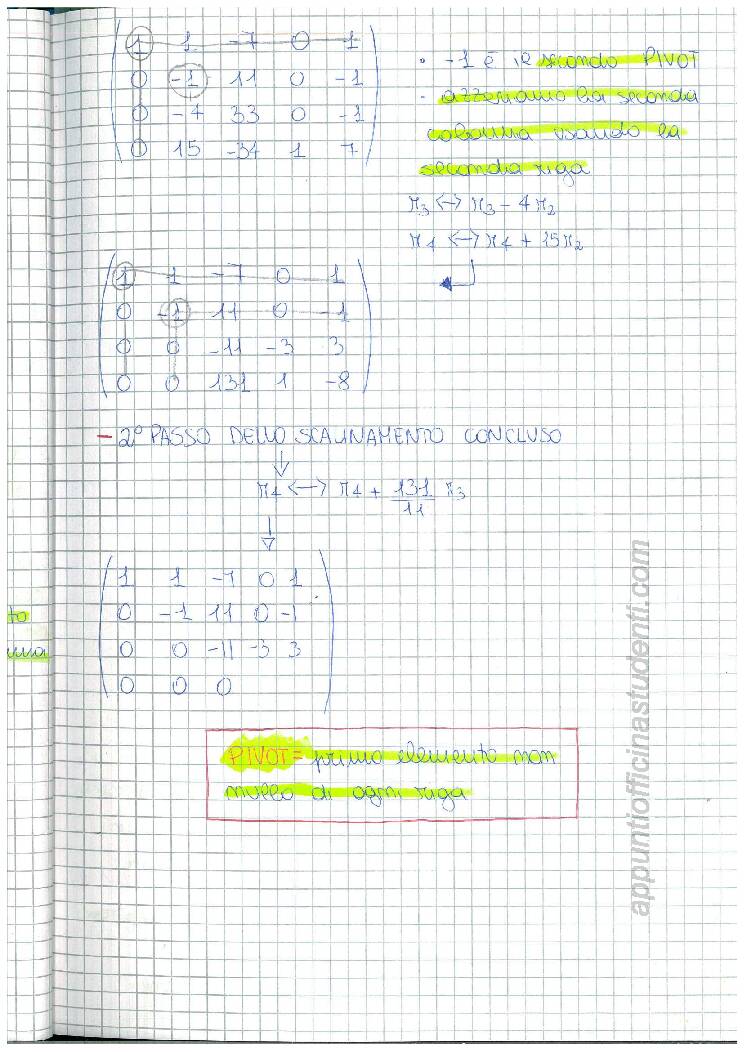 1 1 -7 0 1
0 -1 11 0 -1
0 -4 33 0 -1
0 15 -34 1 7
· -1 è il secondo PIVOT
- azzeriamo la seconda
colonna usando la
seconda riga
r3 <-> r3 - 4r2
r4 <-> r4 + 15r2
1 1 -7 0 1
0 -1 11 0 -1
0 0 -11 -3 3
0 0 131 1 -8
- 2° PASSO DELLO SCALINAMENTO CONCLUSO
r4 <-> r4 + 131/11 r3
1 1 -7 0 1
0 -1 11 0 -1
0 0 -11 -3 3
0 0 0
to
PIVOT = primo elemento non
nullo di ogni riga
appuntiofficinastudenti.com